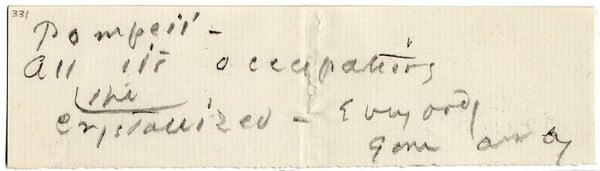 331
Pompeii -
All its occupations
the
crystallized - Everybody
gone away